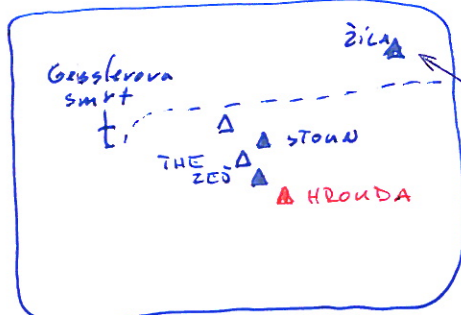 ŽÍLA
Gesslerova
smrt
STOUN
THE
ZEĎ
HROUDA